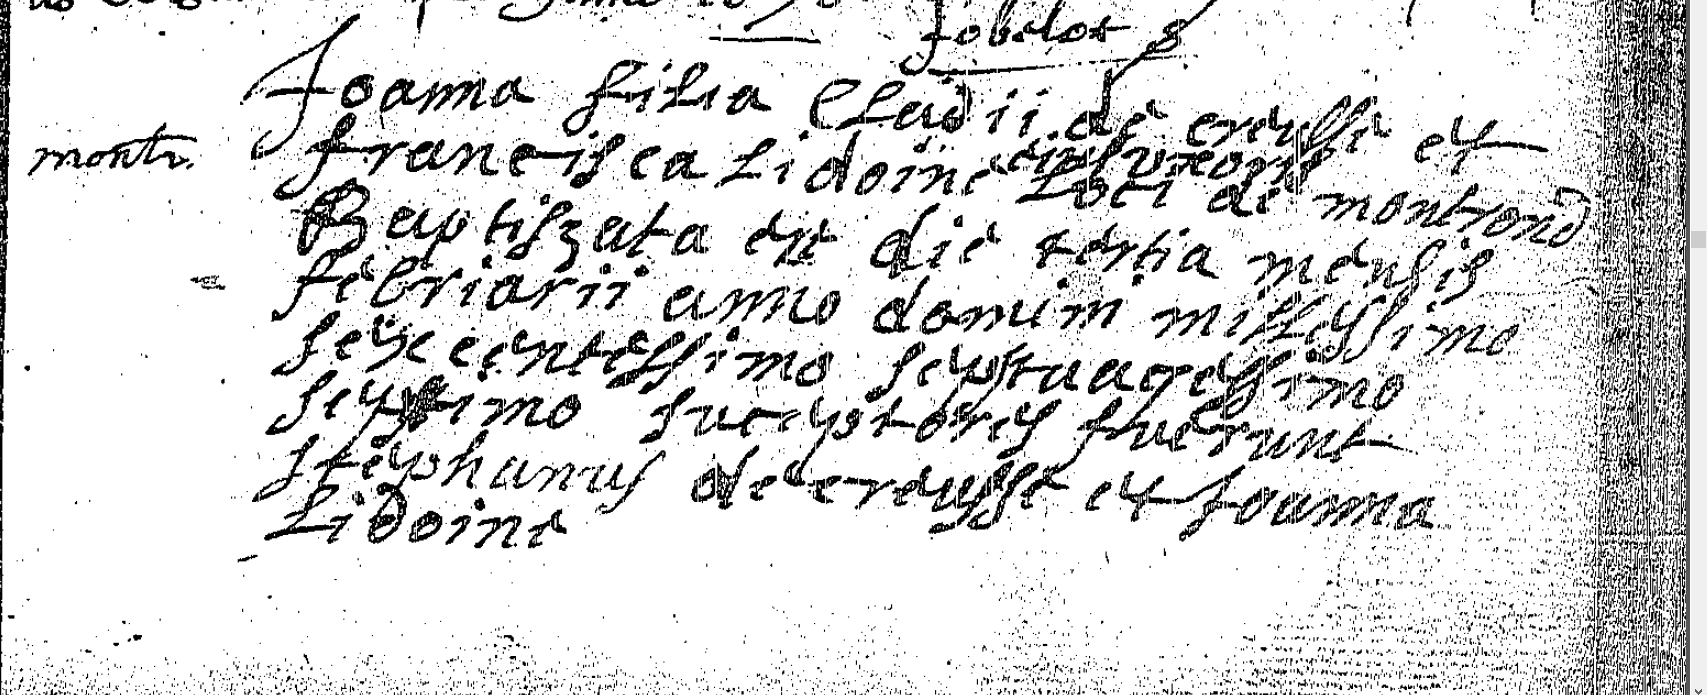 Jobelot
Joanna filia Cladii de creusse et
montr.
francisca Lidoine eius uxoris
Loci de montrond
Baptiszata est die tertia mensis
febriarii anno domini millessimo
sexcentessimo septuagessimo
septimo suceptores fuerunt
stephanus de creusse et Joanna
Lidoine